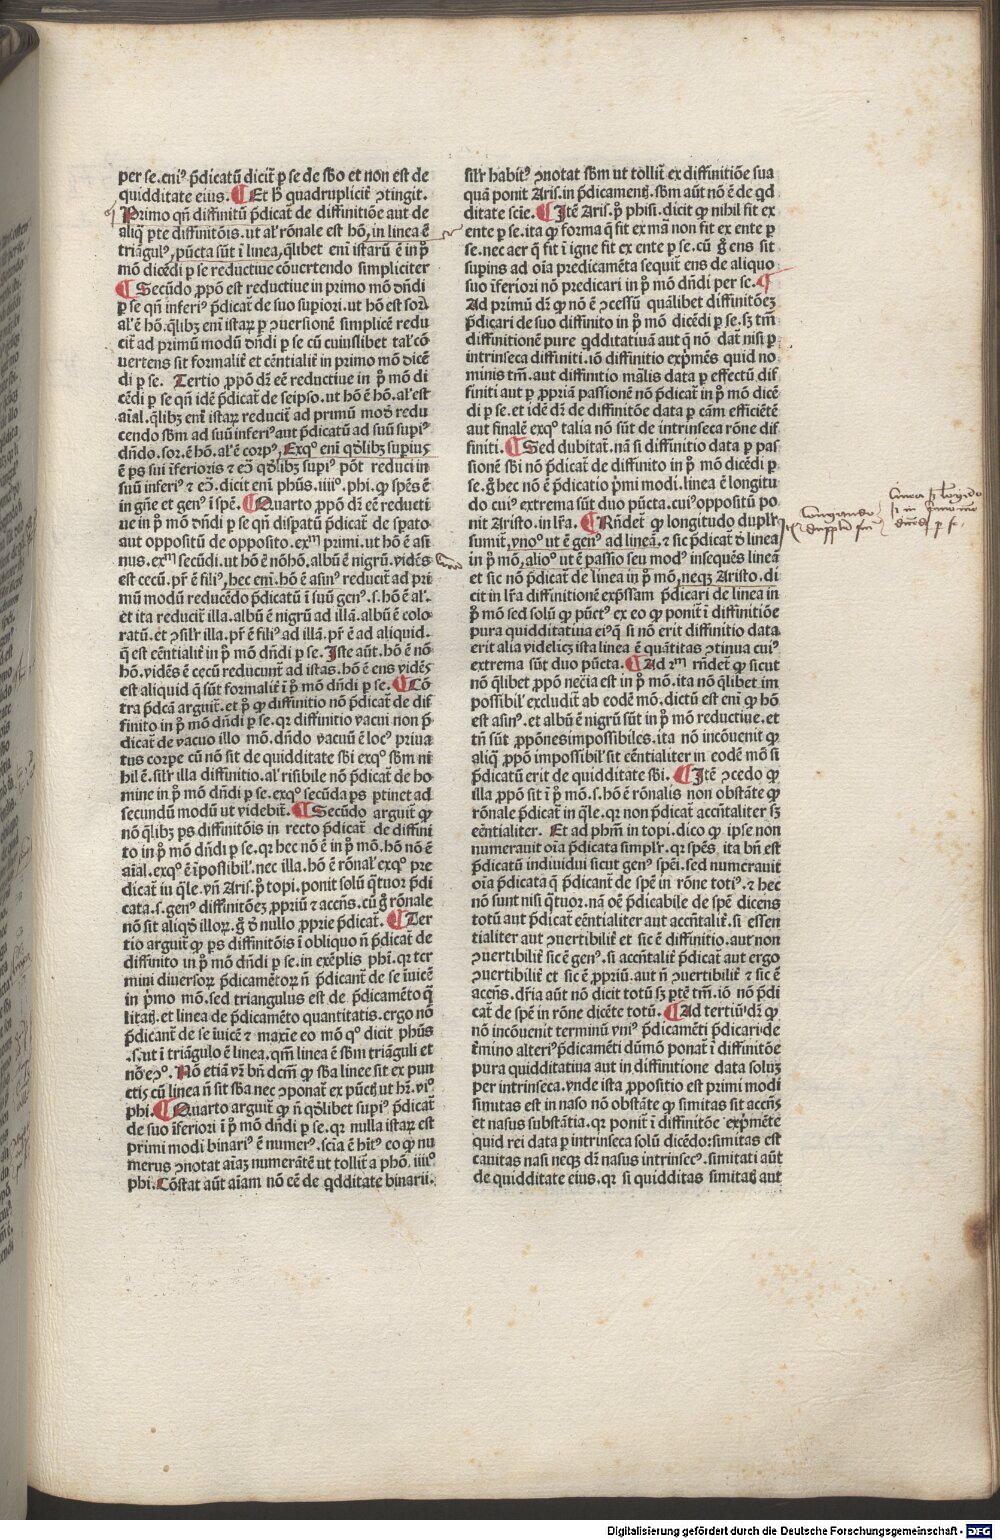 per se.eni⁹ p̄dicatū dicit̄ p se de sb̄o et non est de
quidditate eius. ¶ Et h̄ quadruplicit̄ ꝯtingit.
Primo qn̄ diffinitū p̄dicat̄ de diffinitiōe aut de
aliq̄ pte diffinitōis.ut al' rōnale est hō,in linea ē
triāgul⁹,pūcta sūt ī linea,q̄libet enī istarū ē in p̄
mō dicēdi p se reductiue cōuertendo simpliciter
¶ Secūdo ꝓpō est reductiue in primo mō dn̄di
p se qn̄ inferi⁹ p̄dicat̄ de suo supiori.ut hō est sor.
al' ē hō.q̄libꝫ enī istaꝝ p ꝯuersionē simplicē redu
cit̄ ad primū modū dn̄di p se cū cuiuslibet tal' cō
uertens sit formalit̄ et cēntialit̄ in primo mō dicē
di p se. Tertio ꝓpō dr̄ eē reductiue in p̄ mō di
cēdi p se qn̄ idē p̄dicat̄ de seipso.ut hō ē hō.al' est
aīal.q̄libꝫ enī istaꝝ reducit̄ ad primū modū redu
cendo sb̄m ad suū inferi⁹ aut p̄dicatū ad suū supi⁹
dn̄do.sor.ē hō.al' ē corp⁹,Exq° enī qd̄libꝫ supius
ē ps sui īferioris ⁊ eō qd̄libꝫ supi⁹ pōt reduci in
suū inferi⁹ ⁊ eō.dicit enī phūs.iiii°.phi.ꝙ spēs ē
in gn̄e et gen⁹ ī spē. ¶ Quarto ꝓpō dr̄ eē reducti
ue in p̄ mō dn̄di p se qn̄ dispatū p̄dicat̄ de spato
aut oppositū de opposito.exᵐ primi.ut hō ē asi
nus.exᵐ secūdi.ut hō ē nōhō,albū ē nigrū.vidēs
est cecū.pr̄ ē fili⁹,hec enī.hō ē asin⁹ reducit̄ ad pri
mū modū reducēdo p̄dicatū ī suū gen⁹.s.hō ē al'.
et ita reducit̄ illa.albū ē nigrū ad illā.albū ē colo
ratū.et ꝯsil'r illa.pr̄ ē fili⁹ ad illā.pr̄ ē ad aliquid.
q̄ est cēntialit̄ in p̄ mō dn̄di p se. Iste aūt.hō ē nō
hō.vidēs ē cecū reducunt̄ ad istas.hō ē ens vidēs
est aliquid q̄ sūt formalit̄ ī p̄ mō dn̄di p se. ¶ Cō
tra p̄dcā arguit̄.et p̄ ꝙ diffinitio nō p̄dicat̄ de dif
finito in p̄ mō dn̄di p se.qꝛ diffinitio vacui non p̄
dicat̄ de vacuo illo mō.dn̄do vacuū ē loc⁹ priua
tus corpe cū nō sit de quidditate sb̄i exq° sb̄m ni
hil ē.sil'r illa diffinitio.al' risibile nō p̄dicat̄ de ho
mine in p̄ mō dn̄di p se.exq° secūda ps ptinet ad
secundū modū ut videbit̄. ¶ Secūdo arguit̄ ꝙ
nō q̄libꝫ ps diffinitōis in recto p̄dicat̄ de diffini
to in p̄ mō dn̄di p se.qꝛ hec nō ē in p̄ mō.hō nō ē
aīal.exq° ē īpossibil'.nec illa.hō ē rōnal' exq° pre
dicat̄ in q̄le.vn̄ Aris.p̄ topi.ponit solū q̄tuor p̄di
cata.s.gen⁹ diffinitōeꝫ ꝓpriū ⁊ accn̄s.cū ḡ rōnale
nō sit aliqd̄ illoꝝ.ḡ d̄ nullo ꝓprie p̄dicat̄. ¶ Ter
tio arguit̄ ꝙ ps diffinitōis ī obliquo n̄ p̄dicat̄ de
diffinito in p̄ mō dn̄di p se.in exēplis phi.qꝛ ter
mini diuersoꝝ p̄dicamētoꝝ n̄ p̄dicant̄ de se īuicē
in p̄mo mō.sed triangulus est de p̄dicamēto q̄
litatꝭ.et linea de p̄dicamēto quantitatis.ergo nō
p̄dicant̄ de se īuicē ⁊ maxīe eo mō q° dicit phūs
.s.ut ī triāgulo ē linea.qm̄ linea ē sb̄m triāguli et
nō eꝯ°. Nō etiā vr̄ bn̄ dcm̄ ꝙ sb̄a linee sit ex pun
ctis cū linea n̄ sit sb̄a nec ꝯponat̄ ex pūctꝭ ut hr̄.vi°
phi. ¶ Quarto arguit̄ ꝙ n̄ qd̄libet supi⁹ p̄dicat̄
de suo īferiori ī p̄ mō dn̄di p se.qꝛ nulla istaꝝ est
primi modi binari⁹ ē numer⁹.scīa ē hīt⁹ eo ꝙ nu
merus ꝯnotat aīaꝫ numerātē ut tollit̄ a phō.iiii°
phi.Cōstat aūt aīam nō eē de qdditate binarii.
sil'r habit⁹ ꝯnotat sb̄m ut tollit̄ ex diffinitiōe sua
quā ponit Aris.in p̄dicamentꝭ.sb̄m aūt nō ē de qd
ditate scīe. ¶ Itē Aris.p̄ phisi.dicit ꝙ nihil fit ex
ente p se.ita ꝙ forma q̄ fit ex mā non fit ex ente p
se.nec aer q̄ fit ī igne fit ex ente p se.cū ḡ ens sit
supius ad oīa predicamēta sequit̄ ens de aliquo
suo īferiori nō predicari in p̄ mō dn̄di per se. ¶
Ad primū dr̄ ꝙ nō ē ꝯcessū quālibet diffinitōeꝫ
p̄dicari de suo diffinito in p̄ mō dicēdi p se.sꝫ tm̄
diffinitionē pure qdditatiuā aut q̄ nō dat̄ nisi p
intrinseca diffiniti.iō diffinitio exp̄mēs quid no
minis tm̄.aut diffinitio mālis data p effectū dif
finiti aut p ꝓpriā passionē nō p̄dicat̄ in p̄ mō dicē
di p se.et idē dr̄ de diffinitōe data p cām efficiētē
aut finalē exq° talia nō sūt de intrinseca rōne dif
finiti. ¶ Sed dubitat̄.nā si diffinitio data p pas
sionē sb̄i nō p̄dicat̄ de diffinito in p̄ mō dicēdi p
se.ḡ hec nō ē p̄dicatio p̄mi modi.linea ē longitu
do cui⁹ extrema sūt duo pūcta.cui⁹ oppositū po
nit Aristo.in lr̄a. ¶ Rn̄det̄ ꝙ longitudo dupl'r
sumit̄,vno° ut ē gen⁹ ad lineā.⁊ sic p̄dicat̄ d̄ linea
in p̄ mō,alio° ut ē passio seu mod⁹ insequēs lineā
et sic nō p̄dicat̄ de linea in p̄ mō,neqꝫ Aristo.di
cit in lr̄a diffinitionē exp̄ssam p̄dicari de linea in
p̄ mō sed solū ꝙ pūct⁹ ex eo ꝙ ponit̄ ī diffinitiōe
pura quidditatiua ei⁹ q̄ si nō erit diffinitio data
erit alia videlicꝫ ista linea ē quātitas ꝯtinua cui⁹
extrema sūt duo pūcta. ¶ Ad 2ᵐ rn̄det̄ ꝙ sicut
nō q̄libet ꝓpō nec̄ia est in p̄ mō.ita nō q̄libet im
possibil' excludit̄ ab eodē mō.dictū est enī ꝙ hō
est asin⁹.et albū ē nigrū sūt in p̄ mō reductiue.et
tn̄ sūt ꝓpōnes impossibiles.ita nō incōuenit ꝙ
aliq̄ ꝓpō impossibil' sit eēntialiter in eodē mō si
p̄dicatū erit de quidditate sb̄i. ¶ Itē ꝯcedo ꝙ
illa ꝓpō sit ī p̄ mō.s.hō ē rōnalis non obstāte ꝙ
rōnale p̄dicat̄ in q̄le.qꝛ non p̄dicat̄ accn̄taliter sꝫ
eēntialiter. Et ad phm̄ in topi.dico ꝙ ipse non
numerauit oīa p̄dicata simpl'r.qꝛ spēs ita bn̄ est
p̄dicatū indiuidui sicut gen⁹ spēi.sed numerauit
oīa p̄dicata q̄ p̄dicant̄ de spē in rōne toti⁹.⁊ hec
nō sunt nisi q̄tuor.nā oē p̄dicabile de spē dicens
totū aut p̄dicat̄ eēntialiter aut accn̄talit̄.si essen
tialiter aut ꝯuertibilit̄ et sic ē diffinitio.aut non
ꝯuertibilit̄ sic ē gen⁹.si accn̄talit̄ p̄dicat̄ aut ergo
ꝯuertibilit̄ et sic ē ꝓpriū.aut n̄ ꝯuertibilit̄ ⁊ sic ē
accn̄s.dr̄ia aūt nō dicit totū sꝫ ptē tm̄.iō nō p̄di
cat̄ de spē in rōne dicēte totū. ¶ Ad tertiū dr̄ ꝙ
nō incōuenit terminū vni⁹ p̄dicamēti p̄dicari de
t̄mino alteri⁹ p̄dicamēti dūmō ponat̄ ī diffinitōe
pura quidditatiua aut in diffinitione data soluꝫ
per intrinseca.vnde ista ꝓpositio est primi modi
simitas est in naso nō obstāte ꝙ simitas sit accn̄s
et nasus substātia.qꝛ ponit̄ ī diffinitōe exp̄mēte
quid rei data p intrinseca solū dicēdo:simitas est
cauitas nasi neqꝫ dr̄ nasus intrinsec⁹.simitati aūt
de quidditate eius.qꝛ si quidditas simitatꝭ aut
Digitalisierung gefördert durch die Deutsche Forschungsgemeinschaft - DFG